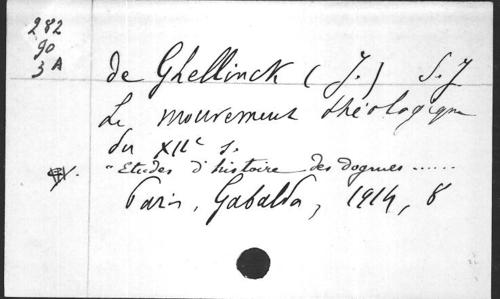 282
90
3A
de Ghellinck (J.) S.J
Le mouvement théologique
du XIIe s.
"Etudes d'histoire des dogmes ......
Paris, Gabalda, 1914, 8